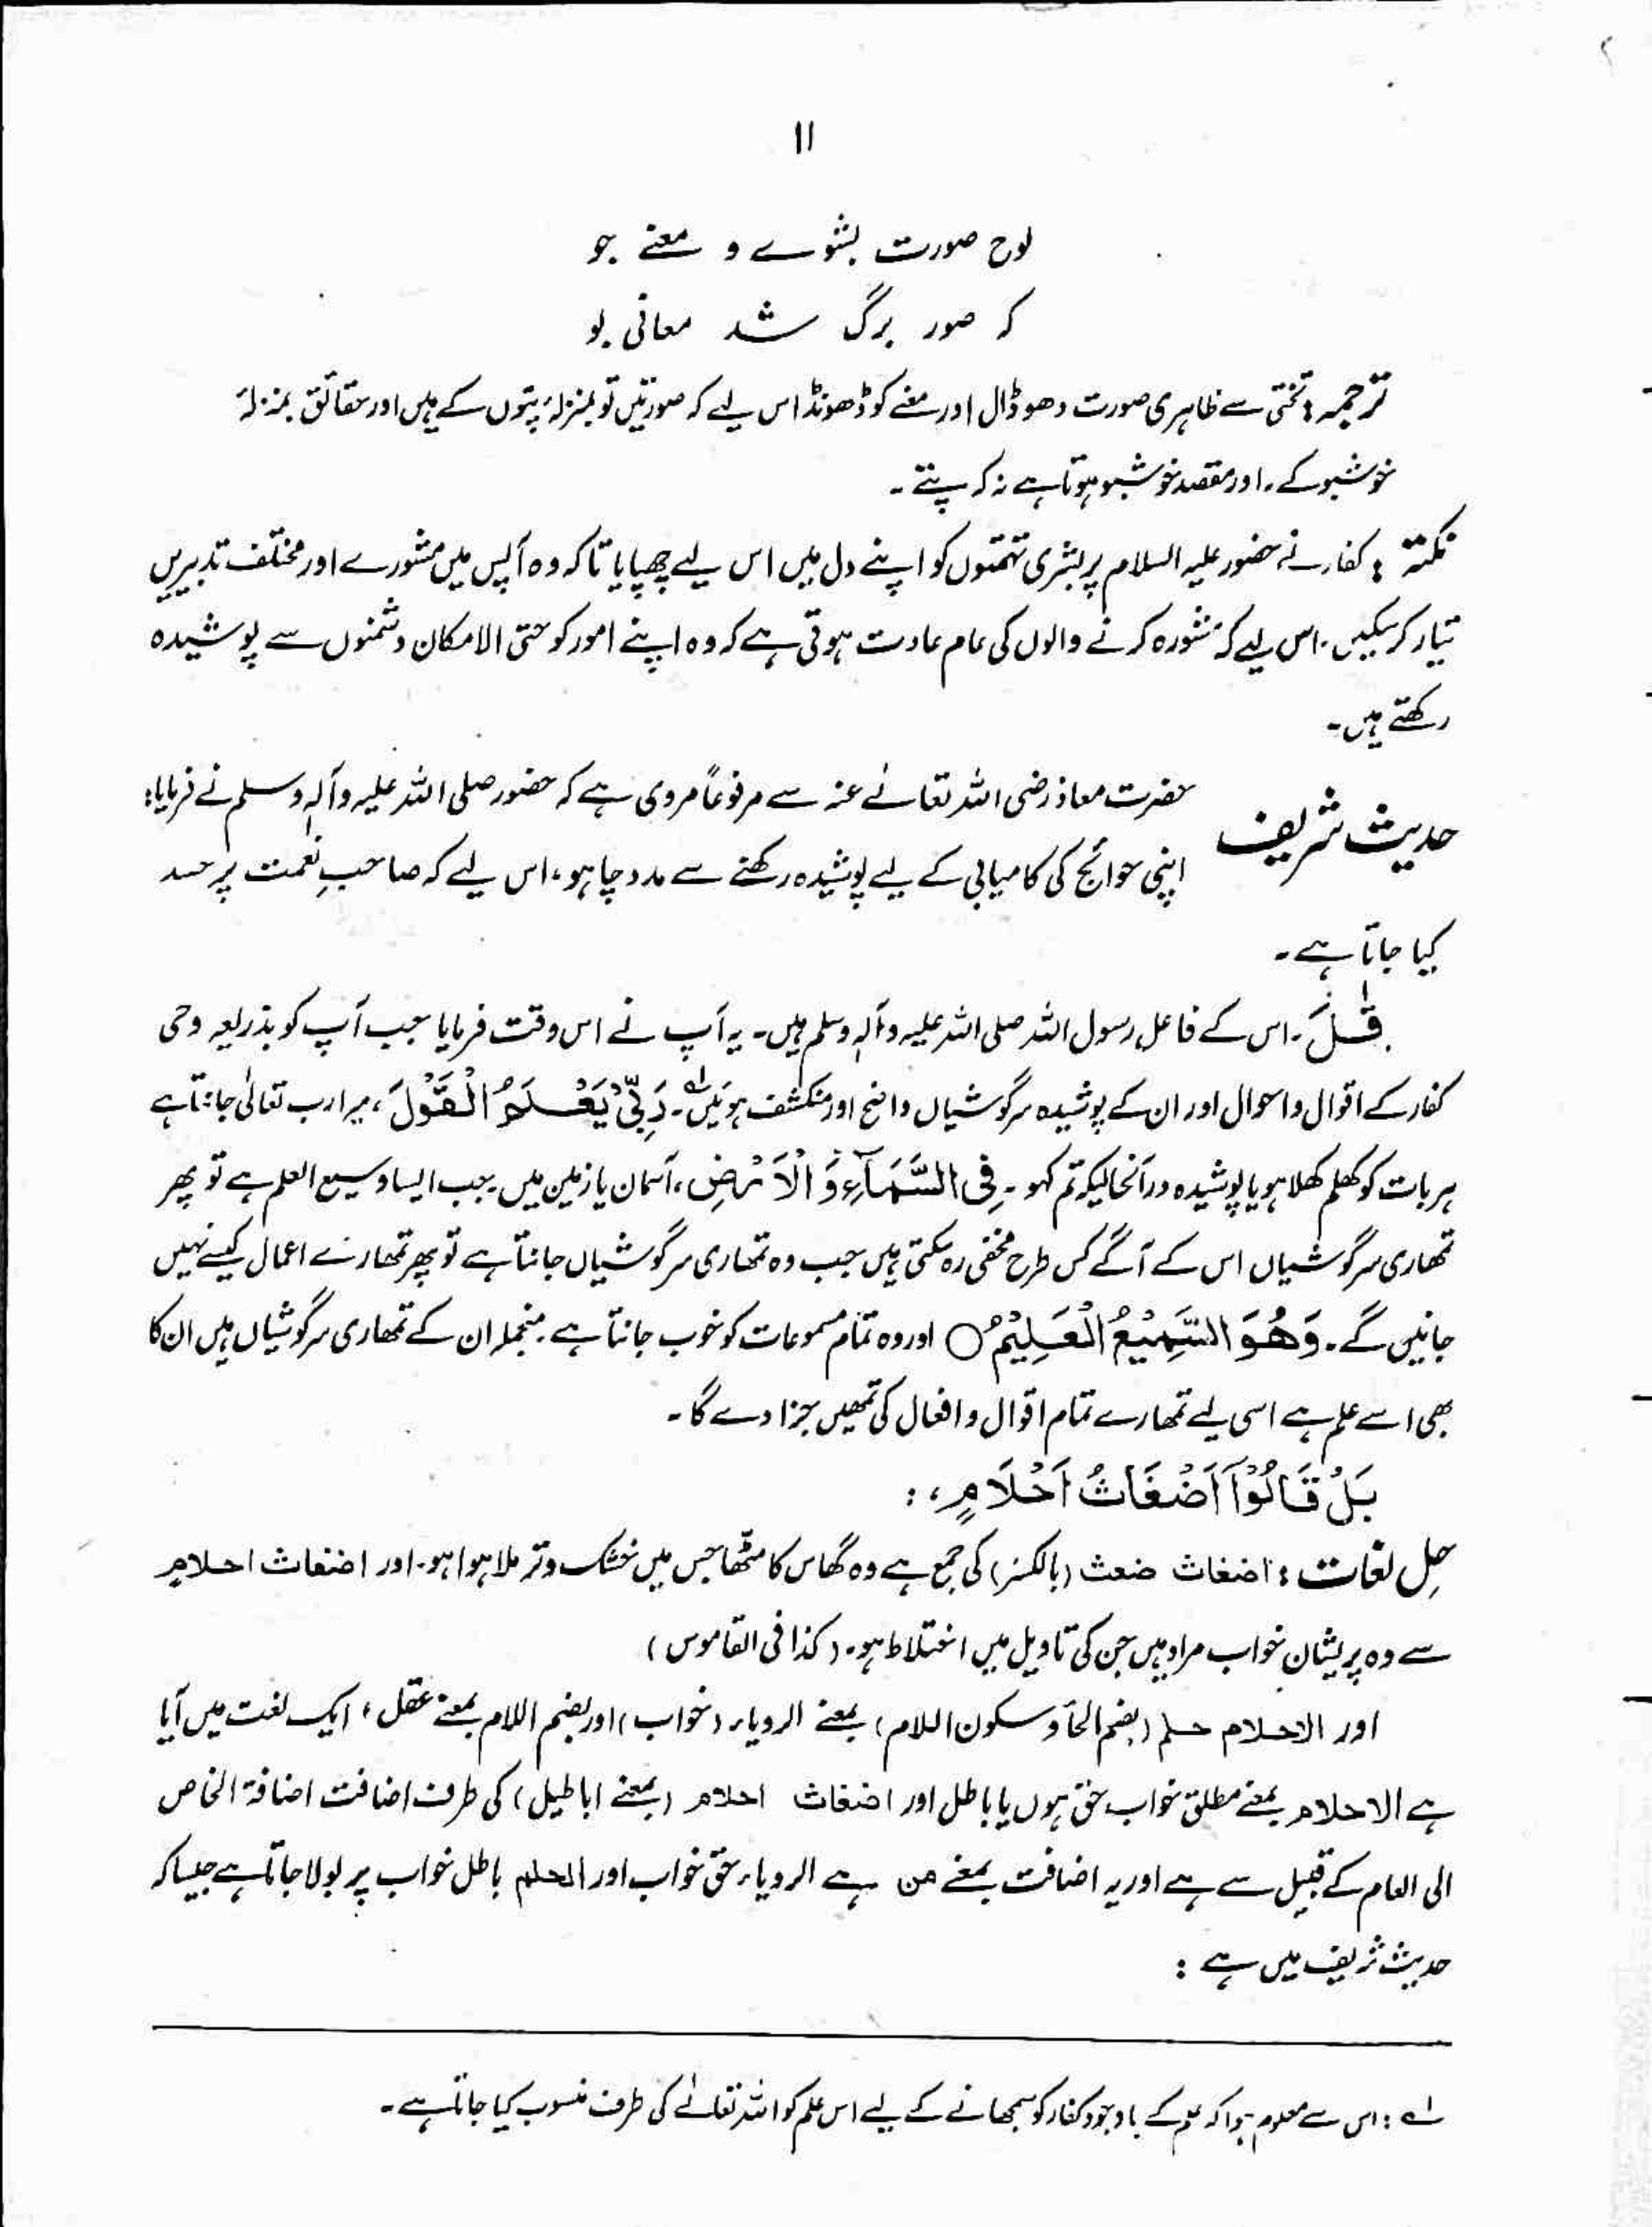 ۱۱
لوح صورت بشوے و معنے جو
کہ صور برگ شد معانی بو
ترجمہ: تختی سے ظاہری صورت دھو ڈال اور معنے کو ڈھونڈ اس لیے کہ صورتیں تو بمنزلۂ پتوں کے ہیں اور حقائق بمنزلۂ
خوشبو کے۔ اور مقصد خوشبو ہوتا ہے نہ کہ پتے۔
نکتہ: کفار نے حضور علیہ السلام پر بشری تہمتوں کو اپنے دل میں اس لیے چھپایا تاکہ وہ آپس میں مشورے اور مختلف تدبیریں
تیار کر سکیں۔ اس لیے کہ مشورہ کرنے والوں کی عام عادت ہوتی ہے کہ وہ اپنے امور کو حتی الامکان دشمنوں سے پوشیدہ
رکھتے ہیں۔
حدیث شریف حضرت معاذ رضی اللہ تعالےٰ عنہ سے مرفوعاً مروی ہے کہ حضور صلی اللہ علیہ وآلہٖ وسلم نے فرمایا:
اپنی حوائج کی کامیابی کے لیے پوشیدہ رکھنے سے مدد چاہو، اس لیے کہ صاحبِ نعمت پر حسد
کیا جاتا ہے۔
قٰلَ۔ اس کے فاعل رسول اللہ صلی اللہ علیہ وآلہٖ وسلم ہیں۔ یہ آپ نے اس وقت فرمایا جب آپ کو بذریعہ وحی
کفار کے اقوال و احوال اور ان کے پوشیدہ سرگوشیاں واضح اور منکشف ہوئیں لہ۔ رَبِّیْ یَعْلَمُ الْقَوْلَ، میرا رب تعالیٰ جانتا ہے
ہر بات کو کھلم کھلا ہو یا پوشیدہ درآنحالیکہ تم کہو۔ فِی السَّمَآءِ وَ الْاَرْضِ، آسمان یا زمین میں۔ جب ایسا وسیع العلم ہے تو پھر
تمھاری سرگوشیاں اس کے آگے کس طرح مخفی رہ سکتی ہیں جب وہ تمھاری سرگوشیاں جانتا ہے تو پھر تمھارے اعمال کیسے نہیں
جانیں گے۔ وَھُوَ السَّمِیْعُ الْعَلِیْمُ ○ اور وہ تمام مسموعات کو خوب جانتا ہے۔ منجملہ ان کے تمھاری سرگوشیاں ہیں ان کا
بھی اسے علم ہے اسی لیے تمھارے تمام اقوال و افعال کی تمھیں جزا دے گا۔
بَلْ قَالُوْٓا اَضْغَاثُ اَحْلَامٍ،:
حل لغات: اضغاث ضعث (بالکسر) کی جمع ہے وہ گھاس کا مٹھا جس میں خشک و تر ملا ہوا ہو۔ اور اضغاث احلام
سے وہ پریشان خواب مراد ہیں جن کی تاویل میں اختلاط ہو۔ (کذا فی القاموس)
اور الاحلام حلم (بضم الحأ و سکون اللام) بمعنے الرویاء (خواب) اور بضم اللام بمعنے عقل، ایک لغت میں آیا
ہے الاحلام بمعنے مطلق خواب حق ہوں یا باطل اور اضغاث احلام (بمعنے اباطیل) کی طرف اضافت اضافۃ الخاص
الی العام کے قبیل سے ہے اور یہ اضافت بمعنے من ہے الرویاء حق خواب اور الحلم باطل خواب پر بولا جاتا ہے جیسا کہ
حدیث شریف میں ہے:
لہ: اس سے معلوم ہوا کہ علم کے باوجود کفار کو سمجھانے کے لیے اس علم کو اللہ تعالےٰ کی طرف منسوب کیا جاتا ہے۔